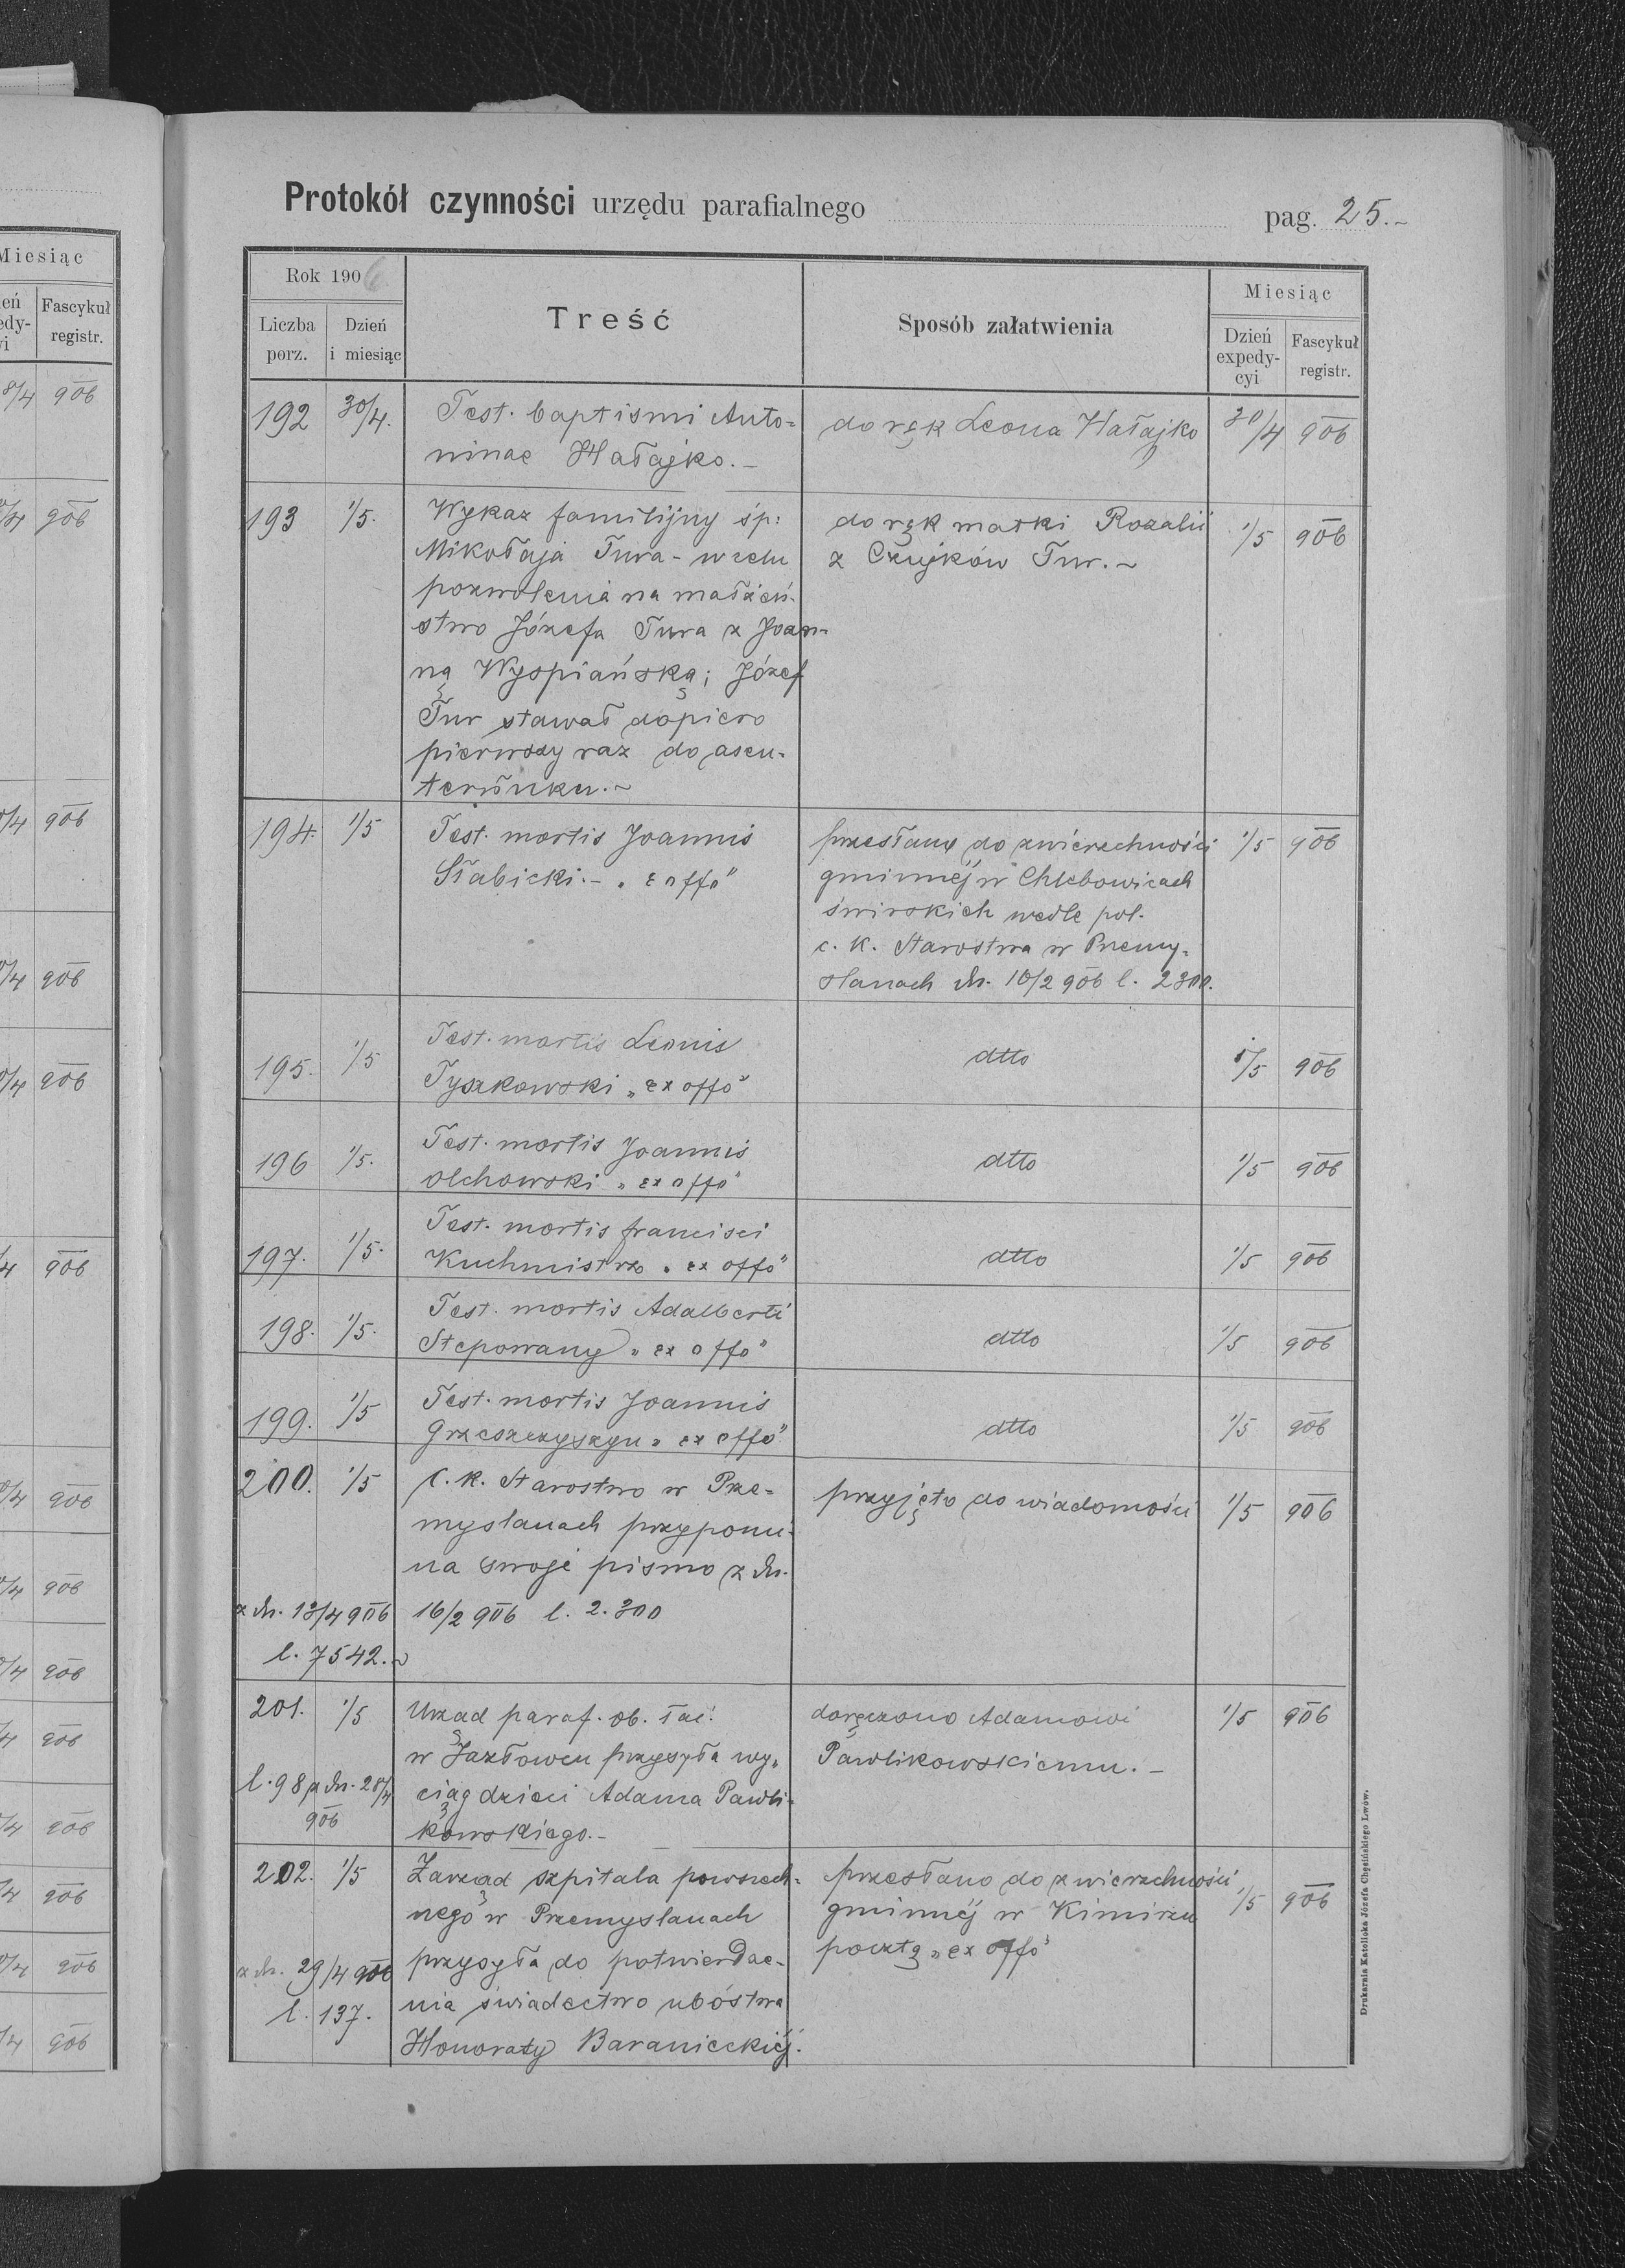 Miesiąc
Fascykuł
registr.
8/4 906
906
906
906
906
906
906
906
906
906
906
906
906
906
Protokół czynności urzędu parafialnego pag. 25.-
Rok 1906 Treść Sposób załatwienia Miesiąc
Liczba porz. Dzień i miesiąc Dzień expedycyi Fascykuł registr.
192 30/4. Test. baptismi Anto= do rąk Leona Hałajko 30/4 906
ninae Hałajko.-
193 1/5. Wykaz familijny śp: do rąk matki Rozalii 1/5 906
Mikołaja Tura - w celu z Czujków Tur.~
pozwolenia na małżeń-
stwo Józefa Tura z Joan-
ną Wyspiańską; Józef
Tur stawał dopiero
pierwszy raz do asen-
terunku.~
194. 1/5 Test. mortis Joannis przesłany do zwierzchności 1/5 906
Słabicki.- "ex offo" gminnej w Chlebowicach
świrskich wedle pol.
c. k. Starostwa w Przemy-
ślanach dn. 16/2 906 l. 2300.
195. 1/5 Test. mortis Leonis dtto 1/5 906
Tyszkowski "ex offo"
196 1/5. Test. mortis Joannis dtto 1/5 906
Olchowski "ex offo"
197. 1/5. Test. mortis Francisci dtto 1/5 906
Kuchmistrz "ex offo"
198. 1/5. Test. mortis Adalberti dtto 1/5 906
Stepowany "ex offo"
199. 1/5 Test. mortis Joannis dtto 1/5 906
Grzeszczyszyn "ex offo"
200. 1/5 C. k. Starostwo w Prze- przyjęto do wiadomości 1/5 906
myslanach przypomi-
na swoje pismo z dn.
z dn. 13/4 906 16/2 906 l. 2.300
l. 7542.~
201. 1/5 Urząd paraf. ob. łać. doręczono Adamowi 1/5 906
w Jazłowcu przysyła wy- Pawlikowskiemu.-
l. 98 z dn. 28/4 ciąg dzieci Adama Pawli-
906 kowskiego.-
202. 1/5 Zarząd szpitala powszech- przesłano do zwierzchności 1/5 906
nego w Przemyslanach gminnej w Kimirzu
z dn. 29/4 906 przysyła do potwierdze- pocztą "ex offo"
l. 137. nia świadectwo ubóstwa
Honoraty Baranieckiéj.
Drukarnia Katolicka Józefa Chęcińskiego Lwów.